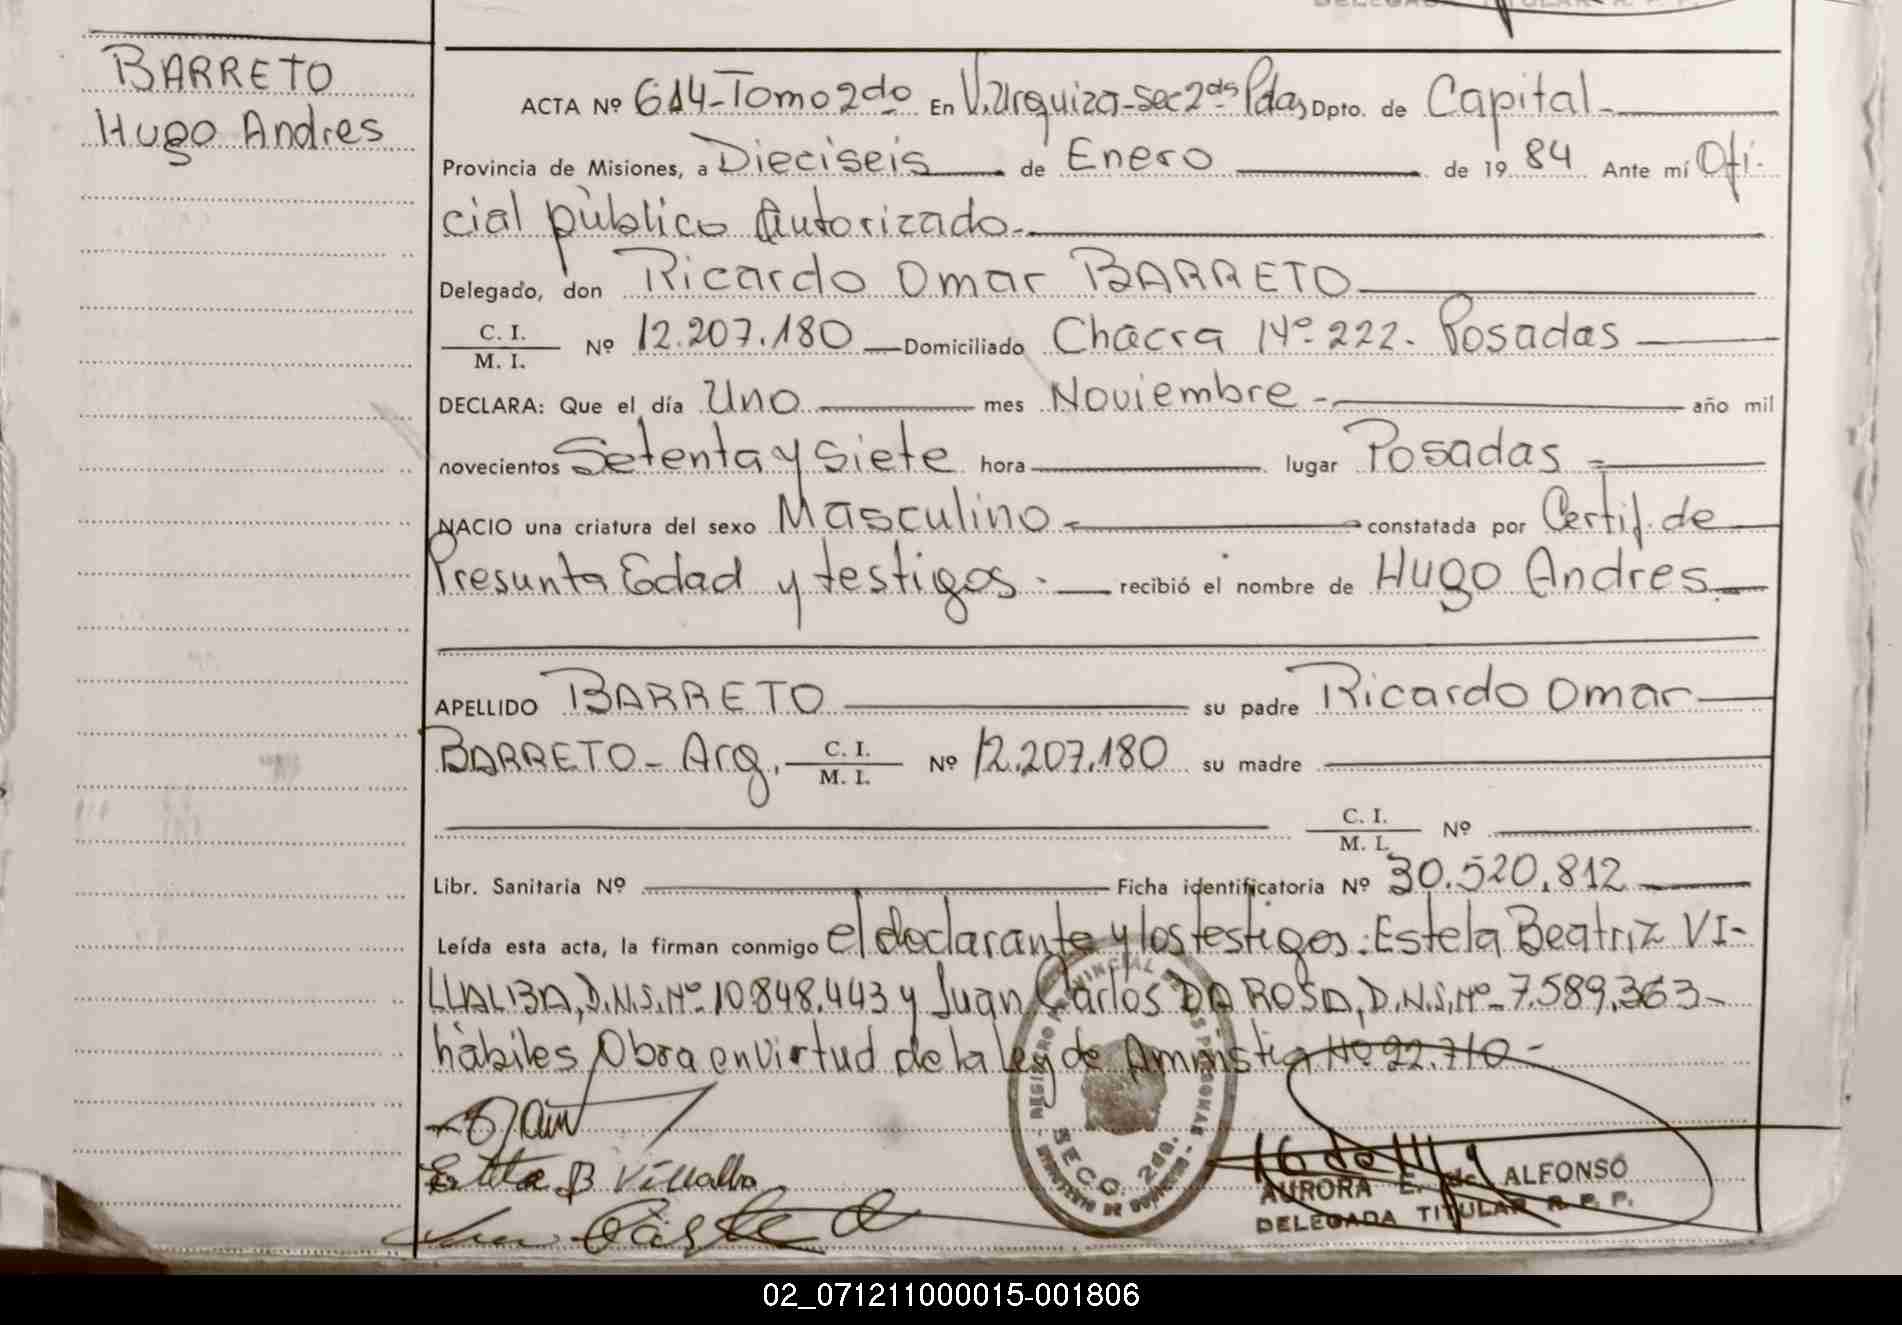 BARRETO
Hugo Andres
ACTA Nº 614-Tomo 2do En V. Urquiza-Sec 2da Pdas, Dpto. de Capital-
Provincia de Misiones, a Dieciseis de Enero de 19 84 Ante mí Ofi-
cial público Autorizado.-
Delegado, don Ricardo Omar BARRETO
C. I.
M. I. Nº 12.207.180 Domiciliado Chacra Nº 222. Posadas
DECLARA: Que el día Uno mes Noviembre - año mil
novecientos Setenta y siete hora lugar Posadas -
NACIO una criatura del sexo Masculino - constatada por Certif. de
Presunta Edad y testigos.- recibió el nombre de Hugo Andres
APELLIDO BARRETO su padre Ricardo Omar
BARRETO- Arg. C. I.
M. I. Nº 12.207.180 su madre
C. I.
M. I. Nº
Libr. Sanitaria Nº Ficha identificatoria Nº 30.520.812
Leída esta acta, la firman conmigo el declarante y los testigos: Estela Beatriz VI-
LLALBA, D.N.I. Nº 10.848.443 y Juan Carlos DA ROSA, D.N.I. Nº 7.589.363-
hábiles, Obra en virtud de la ley de Amnistia Nº 22.710-
Estela B Villalba
SECC. 2da.
AURORA E. de ALFONSO
DELEGADA TITULAR R. P. P.
02_071211000015-001806